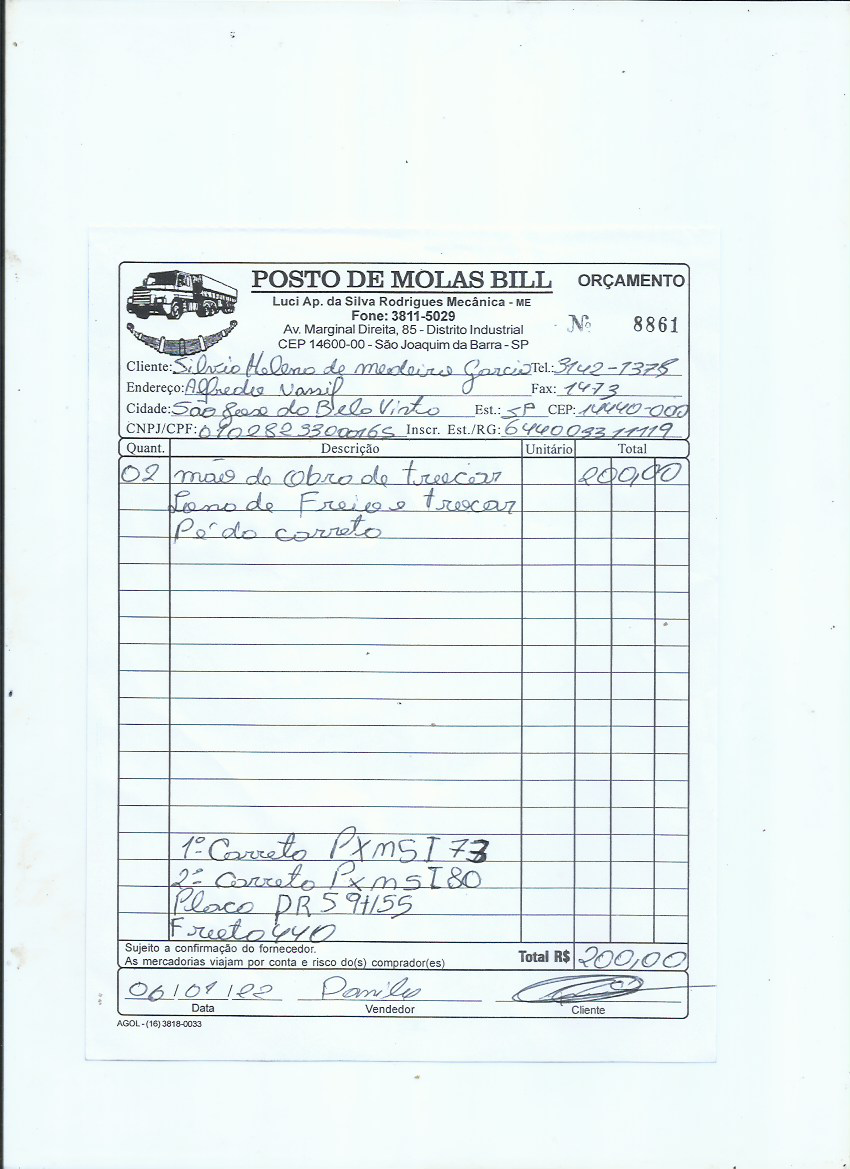 POSTO DE MOLAS BILL ORÇAMENTO
Luci Ap. da Silva Rodrigues Mecânica - ME
Fone: 3811-5029
Av. Marginal Direita, 85 - Distrito Industrial
Nº 8861
CEP 14600-00 - São Joaquim da Barra - SP
Cliente: Silvio Heleno de medeiro Garcia Tel.: 3142-1375
Endereço: Alfredo Nassif Fax: 1473
Cidade: São Jose do Bela Vista Est.: SP CEP: 14440-000
CNPJ/CPF: Inscr. Est./RG:
Quant. Descrição Unitário Total
02 mão do Obra de trocar 200,00
Lona de Freio e trocar
Pé do carreta
1º Carreta PXM5I73
2º Carreta PXM5I80
Placa
440
Sujeito a confirmação do fornecedor.
As mercadorias viajam por conta e risco do(s) comprador(es) Total R$ 200,00
Danilo
Data Vendedor Cliente
AGOL - (16) 3818-0033